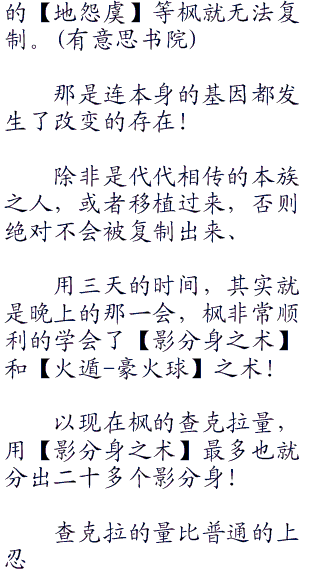 的【地怨虞】等枫就无法复
制。(有意思书院)
那是连本身的基因都发
生了改变的存在！
除非是代代相传的本族
之人，或者移植过来，否则
绝对不会被复制出来、
用三天的时间，其实就
是晚上的那一会，枫非常顺
利的学会了【影分身之术】
和【火遁-豪火球】之术！
以现在枫的查克拉量，
用【影分身之术】最多也就
分出二十多个影分身！
查克拉的量比普通的上
忍